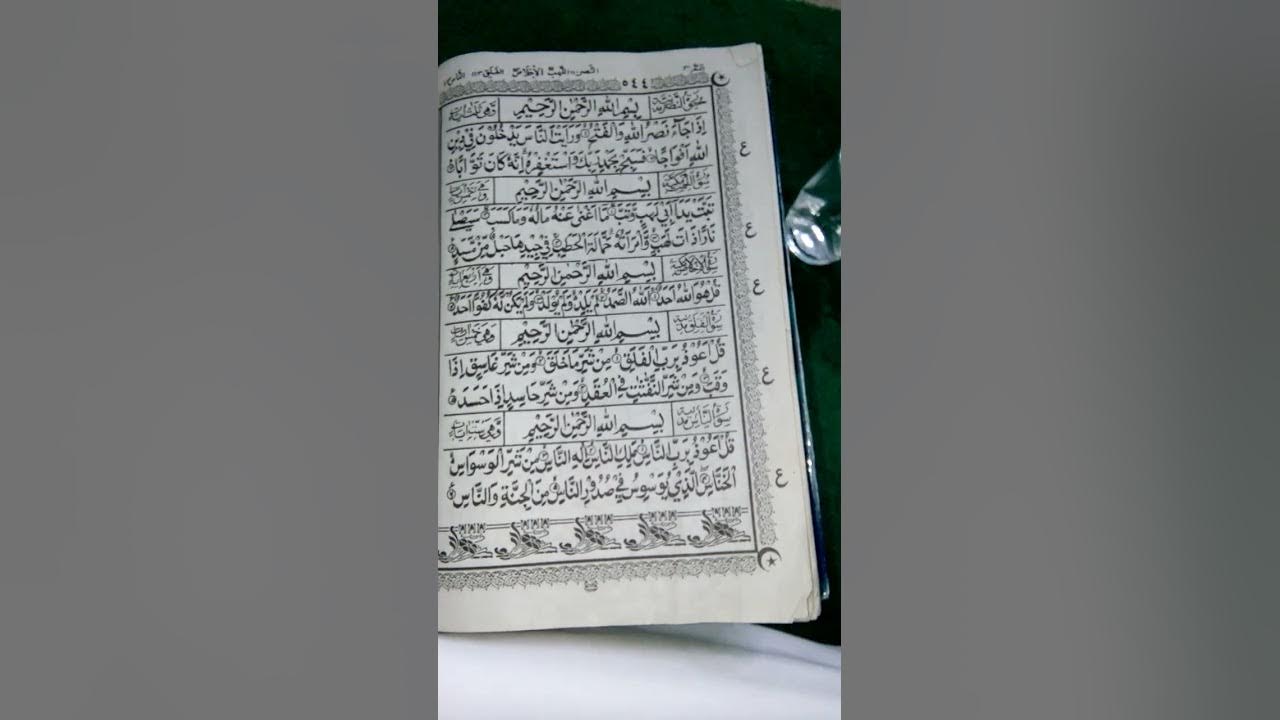 النصر اللهب الاخلاص الفلق الناس
٥٤٤
سُوْرَةُ النَّصْرِ بِسْمِ اللهِ الرَّحْمٰنِ الرَّحِيْمِ وَهِيَ ثَلٰثُ اٰيَاتٍ
اِذَا جَآءَ نَصْرُ اللهِ وَالْفَتْحُ وَرَاَيْتَ النَّاسَ يَدْخُلُوْنَ فِيْ دِيْنِ
اللهِ اَفْوَاجًا فَسَبِّحْ بِحَمْدِ رَبِّكَ وَاسْتَغْفِرْهُ اِنَّهٗ كَانَ تَوَّابًا
بِسْمِ اللهِ الرَّحْمٰنِ الرَّحِيْمِ وَهِيَ خَمْسُ اٰيَاتٍ
تَبَّتْ يَدَآ اَبِيْ لَهَبٍ وَّتَبَّ مَآ اَغْنٰى عَنْهُ مَالُهٗ وَمَا كَسَبَ سَيَصْلٰى
نَارًا ذَاتَ لَهَبٍ وَّامْرَاَتُهٗ حَمَّالَةَ الْحَطَبِ فِيْ جِيْدِهَا حَبْلٌ مِّنْ مَّسَدٍ
سُوْرَةُ الْاِخْلَاصِ بِسْمِ اللهِ الرَّحْمٰنِ الرَّحِيْمِ وَهِيَ اَرْبَعُ اٰيَاتٍ
قُلْ هُوَ اللهُ اَحَدٌ اَللهُ الصَّمَدُ لَمْ يَلِدْ وَلَمْ يُوْلَدْ وَلَمْ يَكُنْ لَّهٗ كُفُوًا اَحَدٌ
سُوْرَةُ الْفَلَقِ بِسْمِ اللهِ الرَّحْمٰنِ الرَّحِيْمِ وَهِيَ خَمْسُ اٰيَاتٍ
قُلْ اَعُوْذُ بِرَبِّ الْفَلَقِ مِنْ شَرِّ مَا خَلَقَ وَمِنْ شَرِّ غَاسِقٍ اِذَا
وَقَبَ وَمِنْ شَرِّ النَّفّٰثٰتِ فِي الْعُقَدِ وَمِنْ شَرِّ حَاسِدٍ اِذَا حَسَدَ
سُوْرَةُ النَّاسِ بِسْمِ اللهِ الرَّحْمٰنِ الرَّحِيْمِ وَهِيَ سِتُّ اٰيَاتٍ
قُلْ اَعُوْذُ بِرَبِّ النَّاسِ مَلِكِ النَّاسِ اِلٰهِ النَّاسِ مِنْ شَرِّ الْوَسْوَاسِ
الْخَنَّاسِ الَّذِيْ يُوَسْوِسُ فِيْ صُدُوْرِ النَّاسِ مِنَ الْجِنَّةِ وَالنَّاسِ
ع
ع
ع
ع
ع